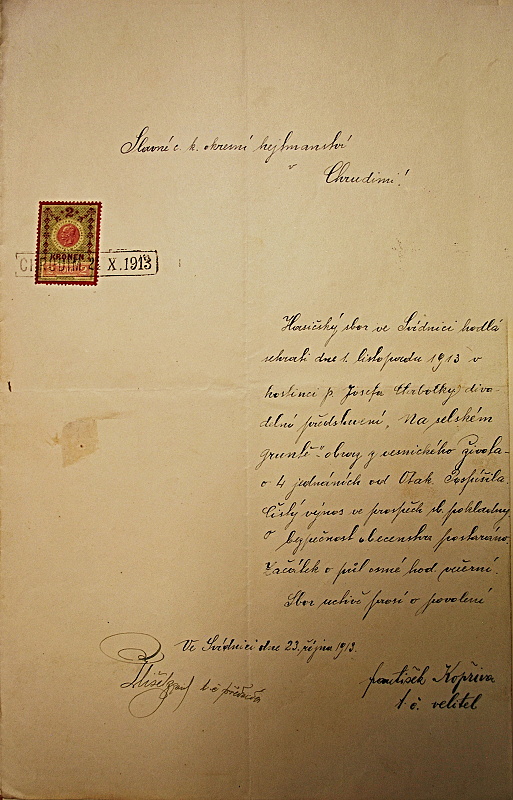 Slavné c. k. okresní hejtmanství
v
Chrudimi!
2
KRONEN
CHRUDIM 2 X. 1913
Hasičský sbor ve Svídnici hodlá
sehrati dne 1. listopadu 1913 v
hostinci p. Josefa diva-
delní představení „Na selském
gruntě“ obrazy z vesnického života
o 4 jednáních od Otak. Pospíšila.
Čistý výnos ve prospěch sb. pokladny.
O bezpečnost obecenstva postaráno.
Začátek o půl osmé hod. večerní.
Sbor uctivě prosí o povolení
Ve Svídnici dne 23. října 1913.
t. č. předseda
František Kopřiva
t. č. velitel